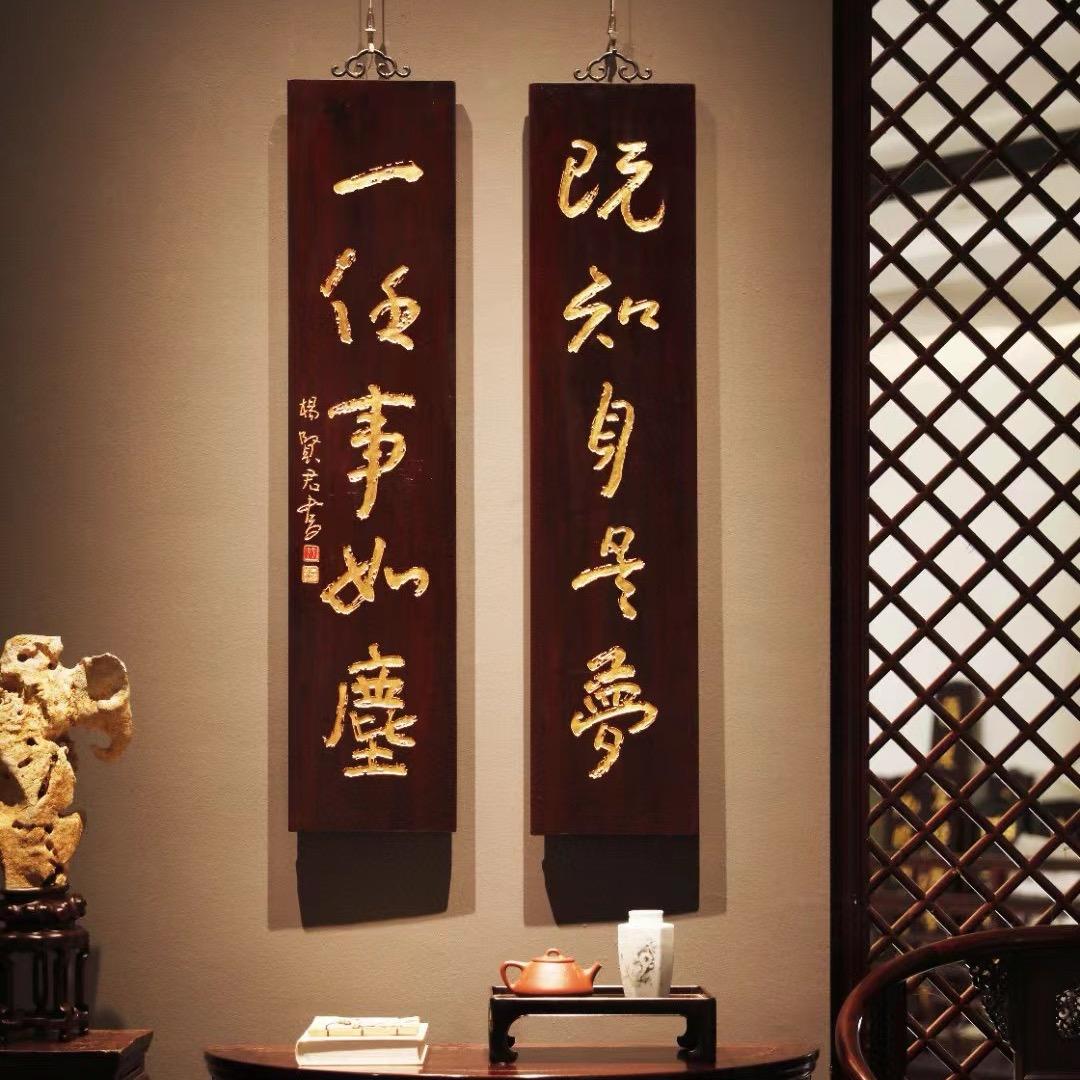 既知身是夢
一任事如塵
楊賢君書